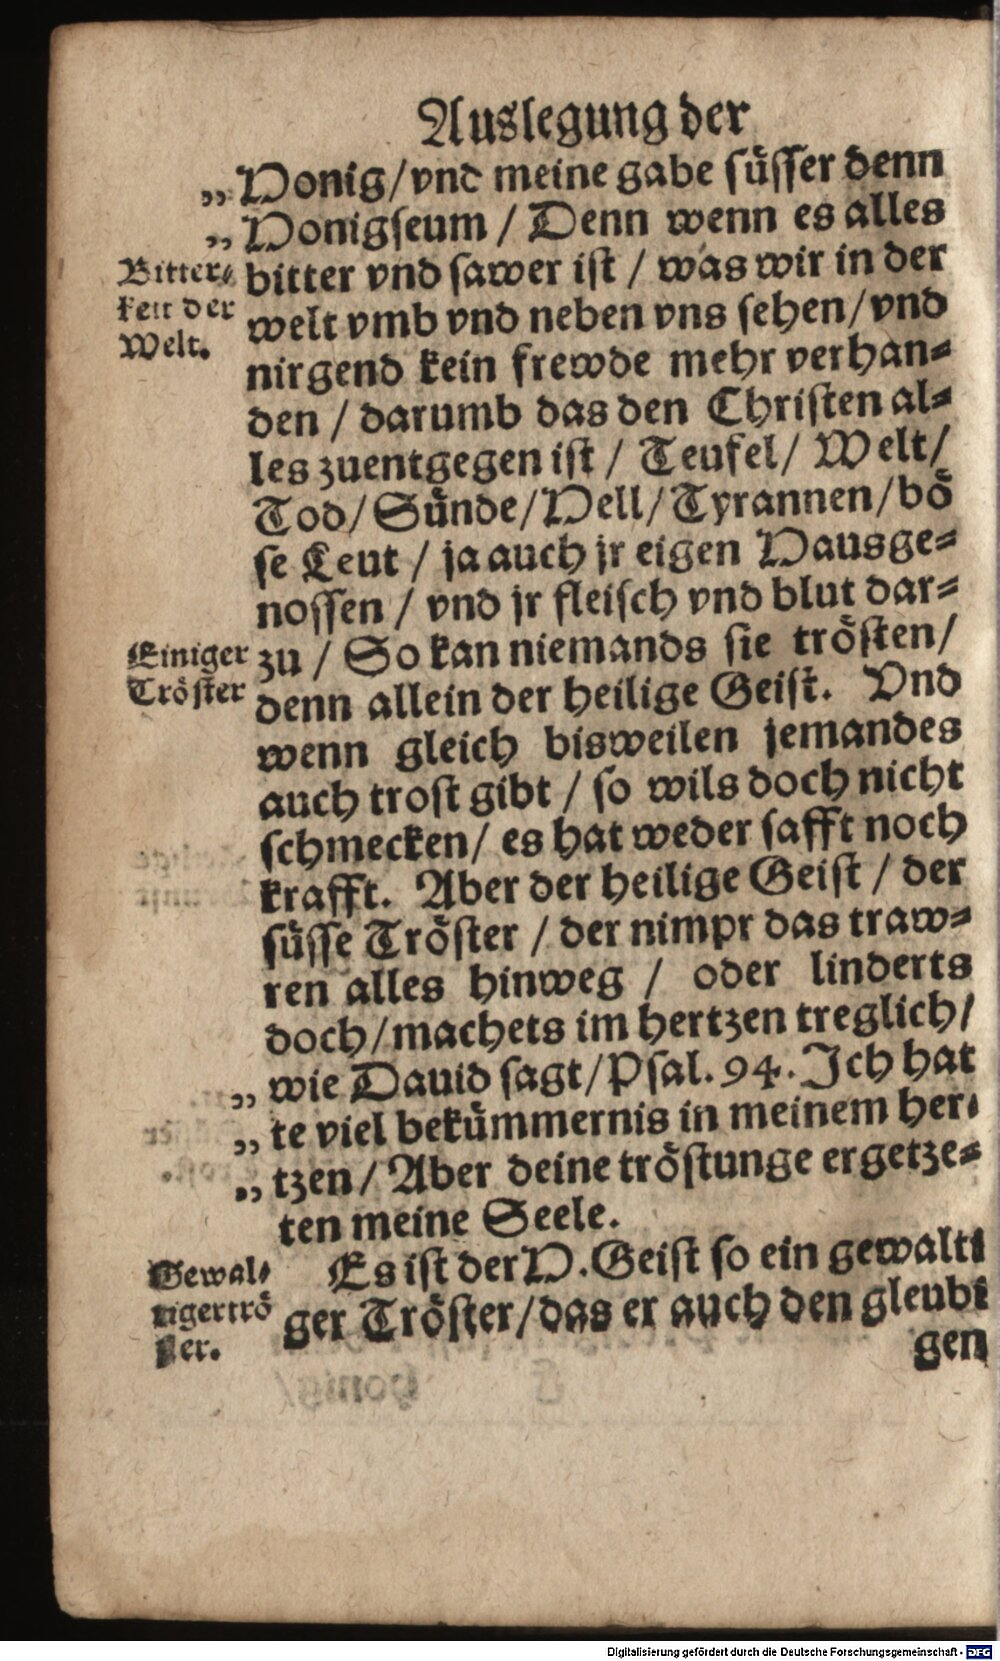 Auslegung der
„ Honig/vnd meine gabe süsser denn
„ Honigseum / Denn wenn es alles
Bitter⸗
keit der
Welt.
bitter vnd sawer ist / was wir in der
welt vmb vnd neben vns sehen/vnd
nirgend kein frewde mehr verhan⸗
den / darumb das den Christen al⸗
les zuentgegen ist / Teufel/ Welt/
Tod/Sünde/Hell/Tyrannen/bö
se Leut / ja auch jr eigen Hausge⸗
nossen / vnd jr fleisch vnd blut dar⸗
Einiger
Tröster
zu / So kan niemands sie trösten/
denn allein der heilige Geist. Vnd
wenn gleich bisweilen jemandes
auch trost gibt / so wils doch nicht
schmecken/ es hat weder safft noch
krafft. Aber der heilige Geist / der
süsse Tröster / der nimpt das traw⸗
ren alles hinweg / oder linderts
doch/machets im hertzen treglich/
„ wie Dauid sagt/Psal. 94. Ich hat
„ te viel bekümmernis in meinem her⸗
„ tzen/ Aber deine tröstunge ergetze⸗
ten meine Seele.
Gewal⸗
tigertrö
ster.
Es ist der H. Geist so ein gewalti
ger Tröster/das er auch den gleubi
gen
Digitalisierung gefördert durch die Deutsche Forschungsgemeinschaft - DFG